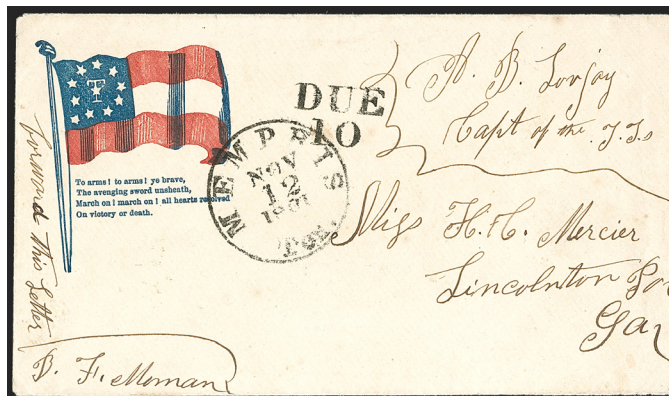 T
To arms! to arms! ye brave,
The avenging sword unsheath,
March on! march on! all hearts resolved
On victory or death.
DUE
10
MEMPHIS
NOV
12
1861
Ten.
A. B. Lovjoy
Capt of the
Miss H. H. Mercier
Lincolnton
Ga
forward this Letter
B. F. Moman